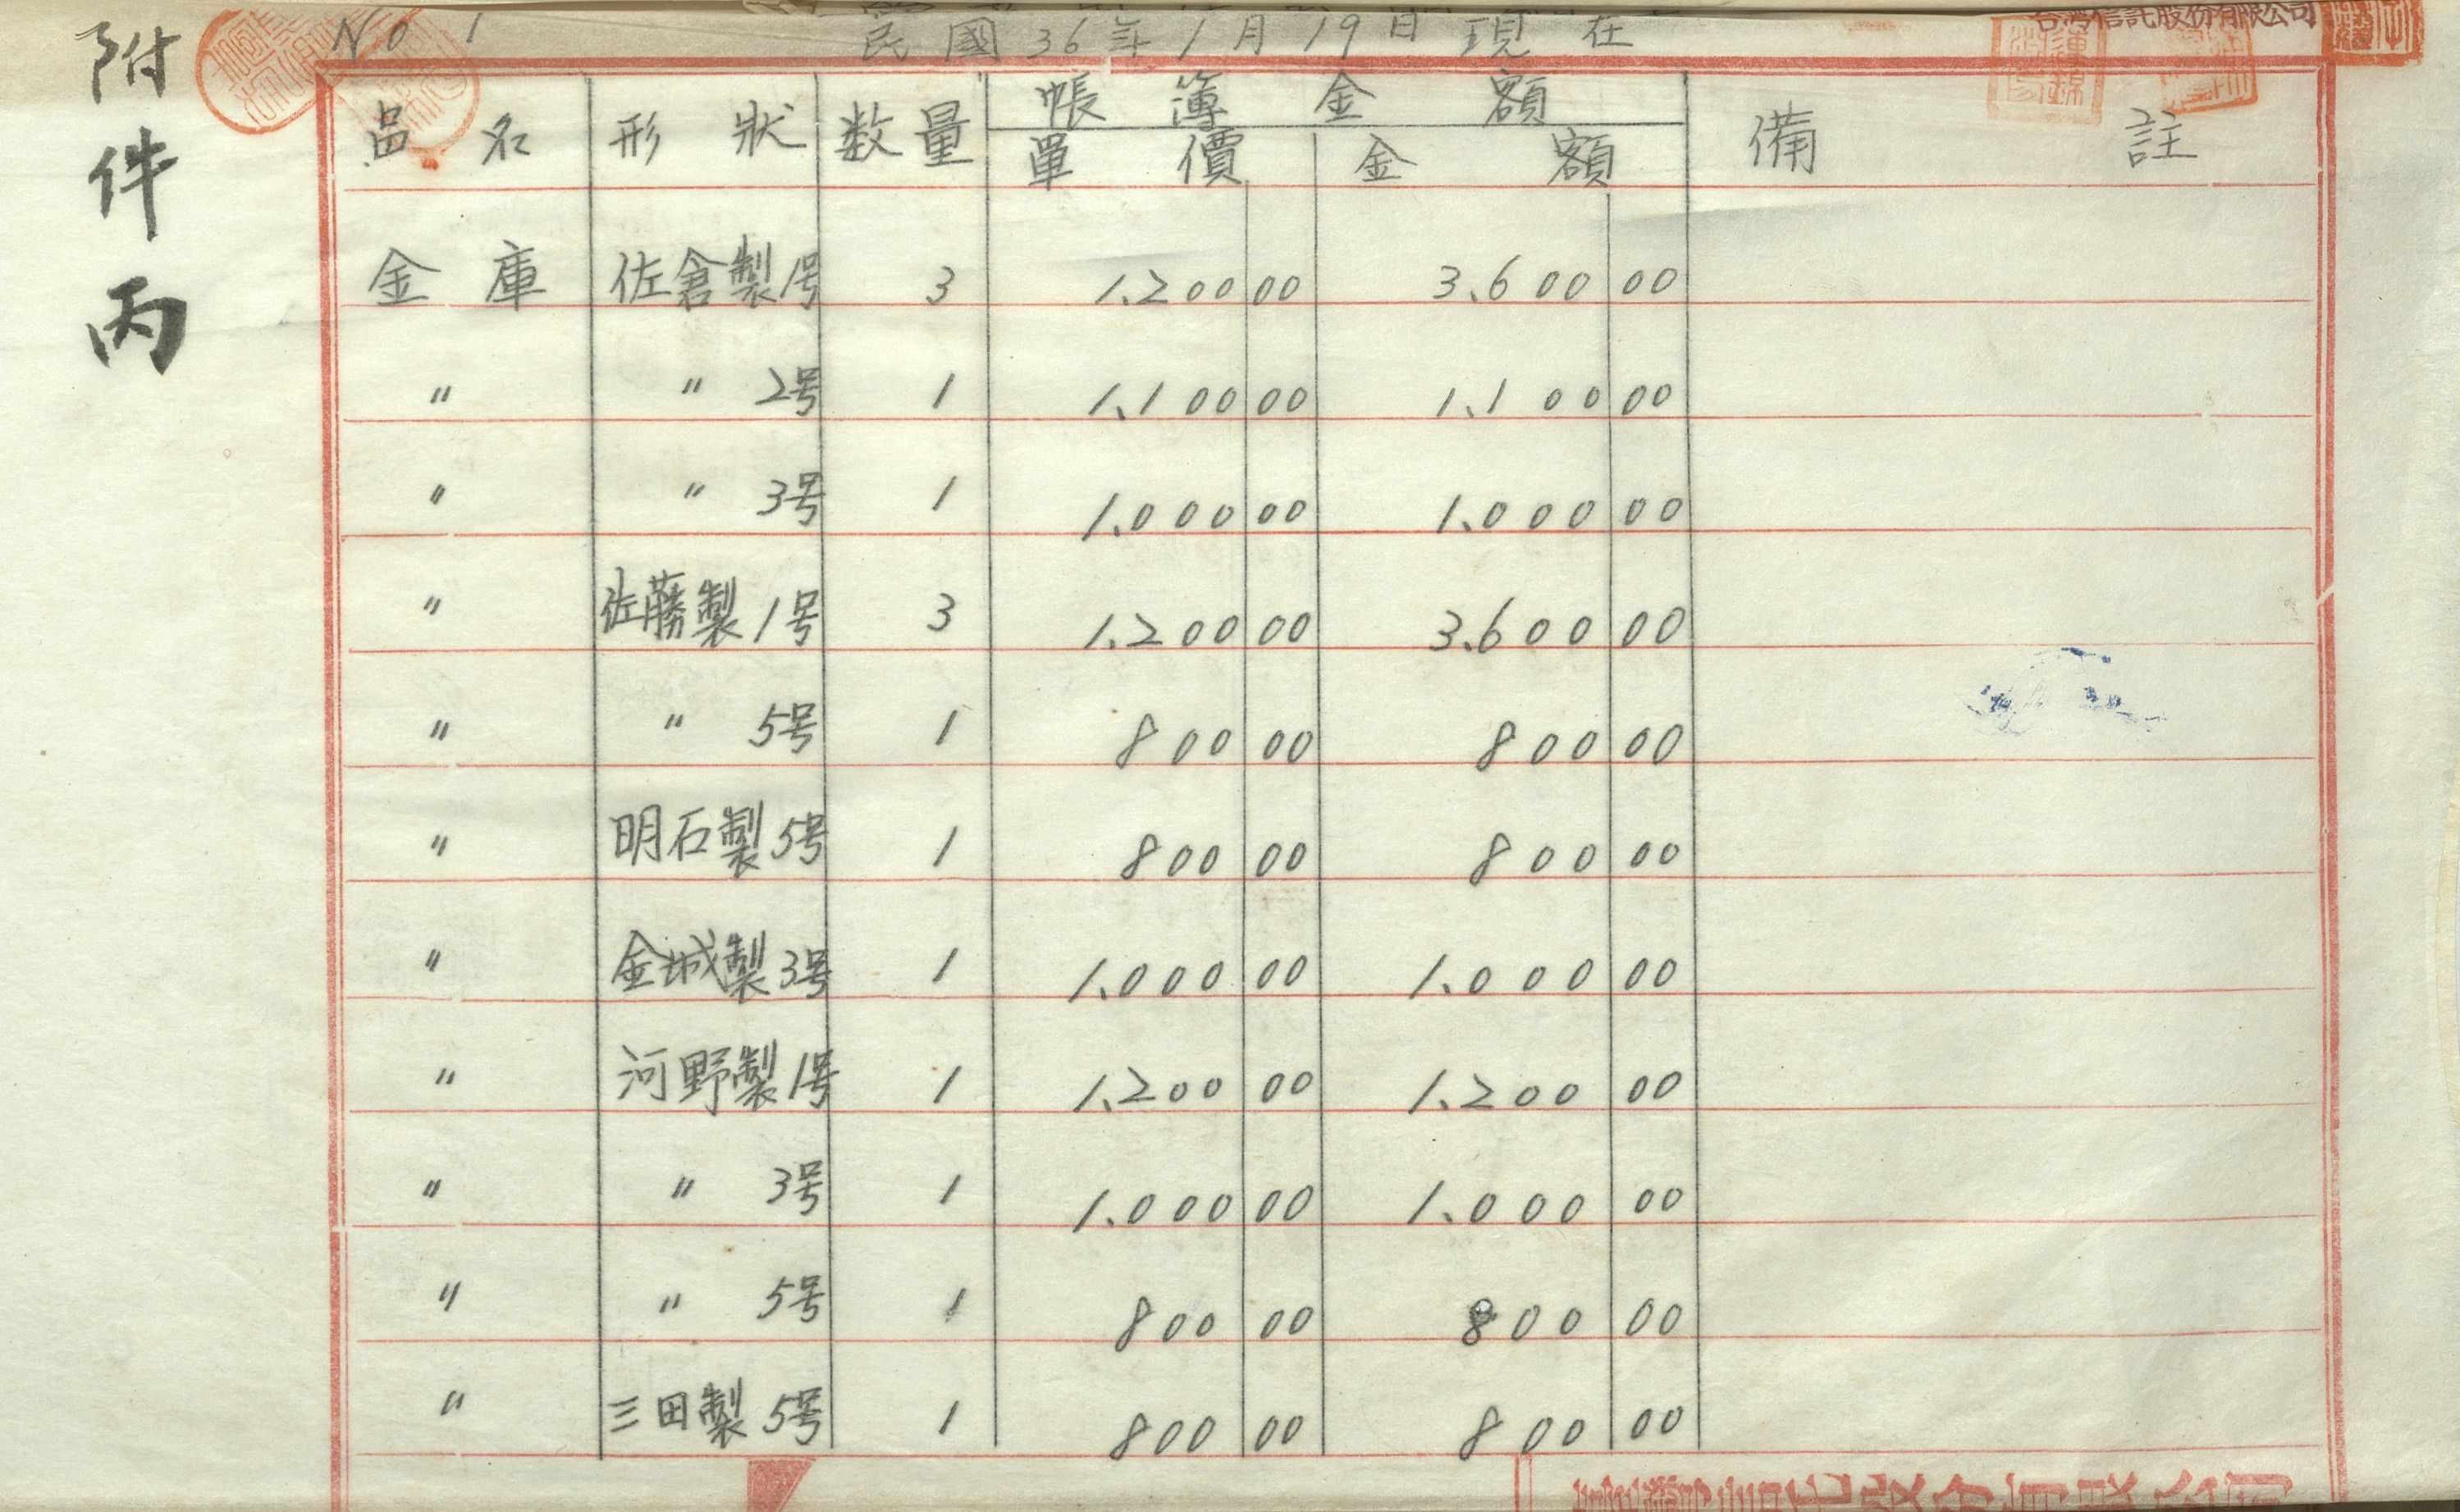 附件丙
No 1
民國36年1月19日現在
台灣信託股份有限公司
品名 形狀 数量 帳簿金額 備註
單價 金額
金庫 佐倉製1号 3 1.200 00 3.600 00
〃 〃 2号 1 1.100 00 1.100 00
〃 〃 3号 1 1.000 00 1.000 00
〃 佐藤製1号 3 1.200 00 3.600 00
〃 〃 5号 1 800 00 800 00
〃 明石製5号 1 800 00 800 00
〃 金城製3号 1 1.000 00 1.000 00
〃 河野製1号 1 1.200 00 1.200 00
〃 〃 3号 1 1.000 00 1.000 00
〃 〃 5号 1 800 00 800 00
〃 三田製5号 1 800 00 800 00